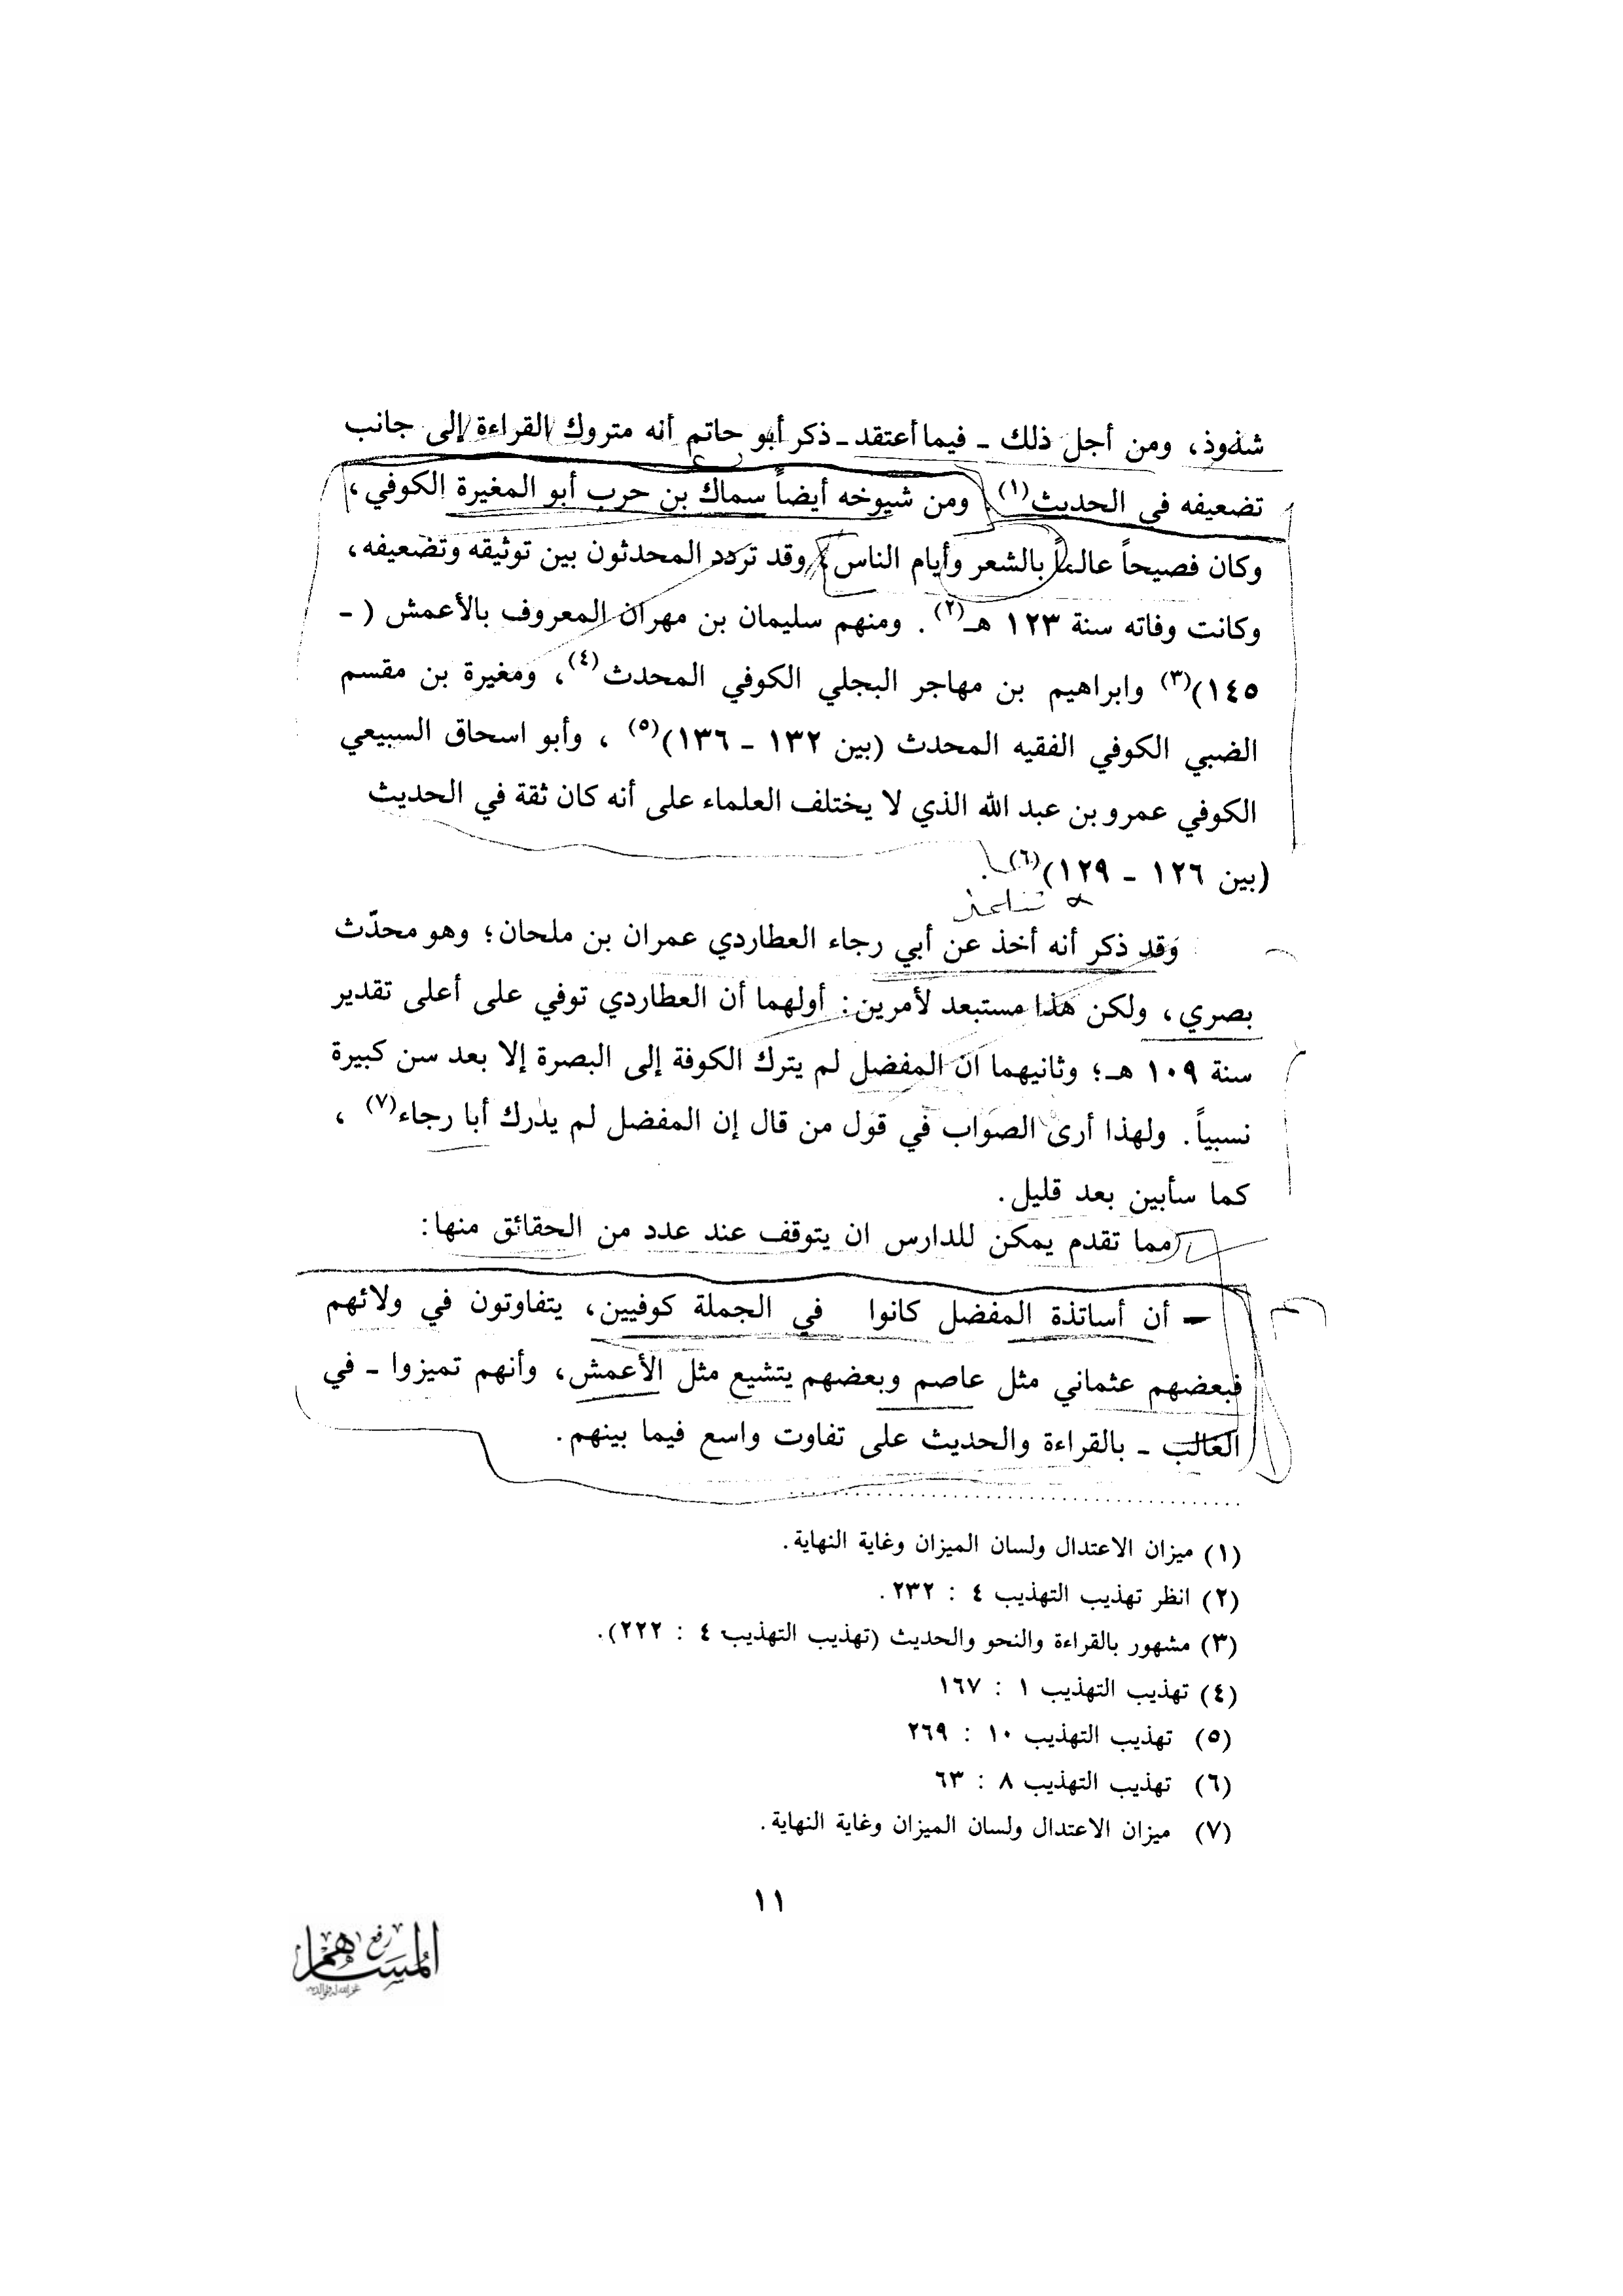 شذوذ، ومن أجل ذلك ـ فيما أعتقد ـ ذكر أبو حاتم أنه متروك القراءة إلى جانب
تضعيفه في الحديث(١). ومن شيوخه أيضاً سماك بن حرب أبو المغيرة الكوفي،
وكان فصيحاً عالماً بالشعر وأيام الناس؛ وقد تردد المحدثون بين توثيقه وتضعيفه،
وكانت وفاته سنة ١٢٣ هـ(٢). ومنهم سليمان بن مهران المعروف بالأعمش (ـ
١٤٥)(٣) وابراهيم بن مهاجر البجلي الكوفي المحدث(٤)، ومغيرة بن مقسم
الضبي الكوفي الفقيه المحدث (بين ١٣٢ ـ ١٣٦)(٥)، وأبو اسحاق السبيعي
الكوفي عمرو بن عبد الله الذي لا يختلف العلماء على أنه كان ثقة في الحديث
(بين ١٢٦ ـ ١٢٩)(٦).
وقد ذكر أنه أخذ عن أبي رجاء العطاردي عمران بن ملحان؛ وهو محدّث
بصري، ولكن هذا مستبعد لأمرين: أولهما أن العطاردي توفي على أعلى تقدير
سنة ١٠٩ هـ؛ وثانيهما ان المفضل لم يترك الكوفة إلى البصرة إلا بعد سن كبيرة
نسبياً. ولهذا أرى الصواب في قول من قال إن المفضل لم يدرك أبا رجاء(٧)،
كما سأبين بعد قليل.
مما تقدم يمكن للدارس ان يتوقف عند عدد من الحقائق منها:
ـ أن أساتذة المفضل كانوا في الجملة كوفيين، يتفاوتون في ولائهم
فبعضهم عثماني مثل عاصم وبعضهم يتشيع مثل الأعمش، وأنهم تميزوا ـ في
الغالب ـ بالقراءة والحديث على تفاوت واسع فيما بينهم.
(١) ميزان الاعتدال ولسان الميزان وغاية النهاية.
(٢) انظر تهذيب التهذيب ٤ : ٢٣٢.
(٣) مشهور بالقراءة والنحو والحديث (تهذيب التهذيب ٤ : ٢٢٢).
(٤) تهذيب التهذيب ١ : ١٦٧
(٥) تهذيب التهذيب ١٠ : ٢٦٩
(٦) تهذيب التهذيب ٨ : ٦٣
(٧) ميزان الاعتدال ولسان الميزان وغاية النهاية.
١١